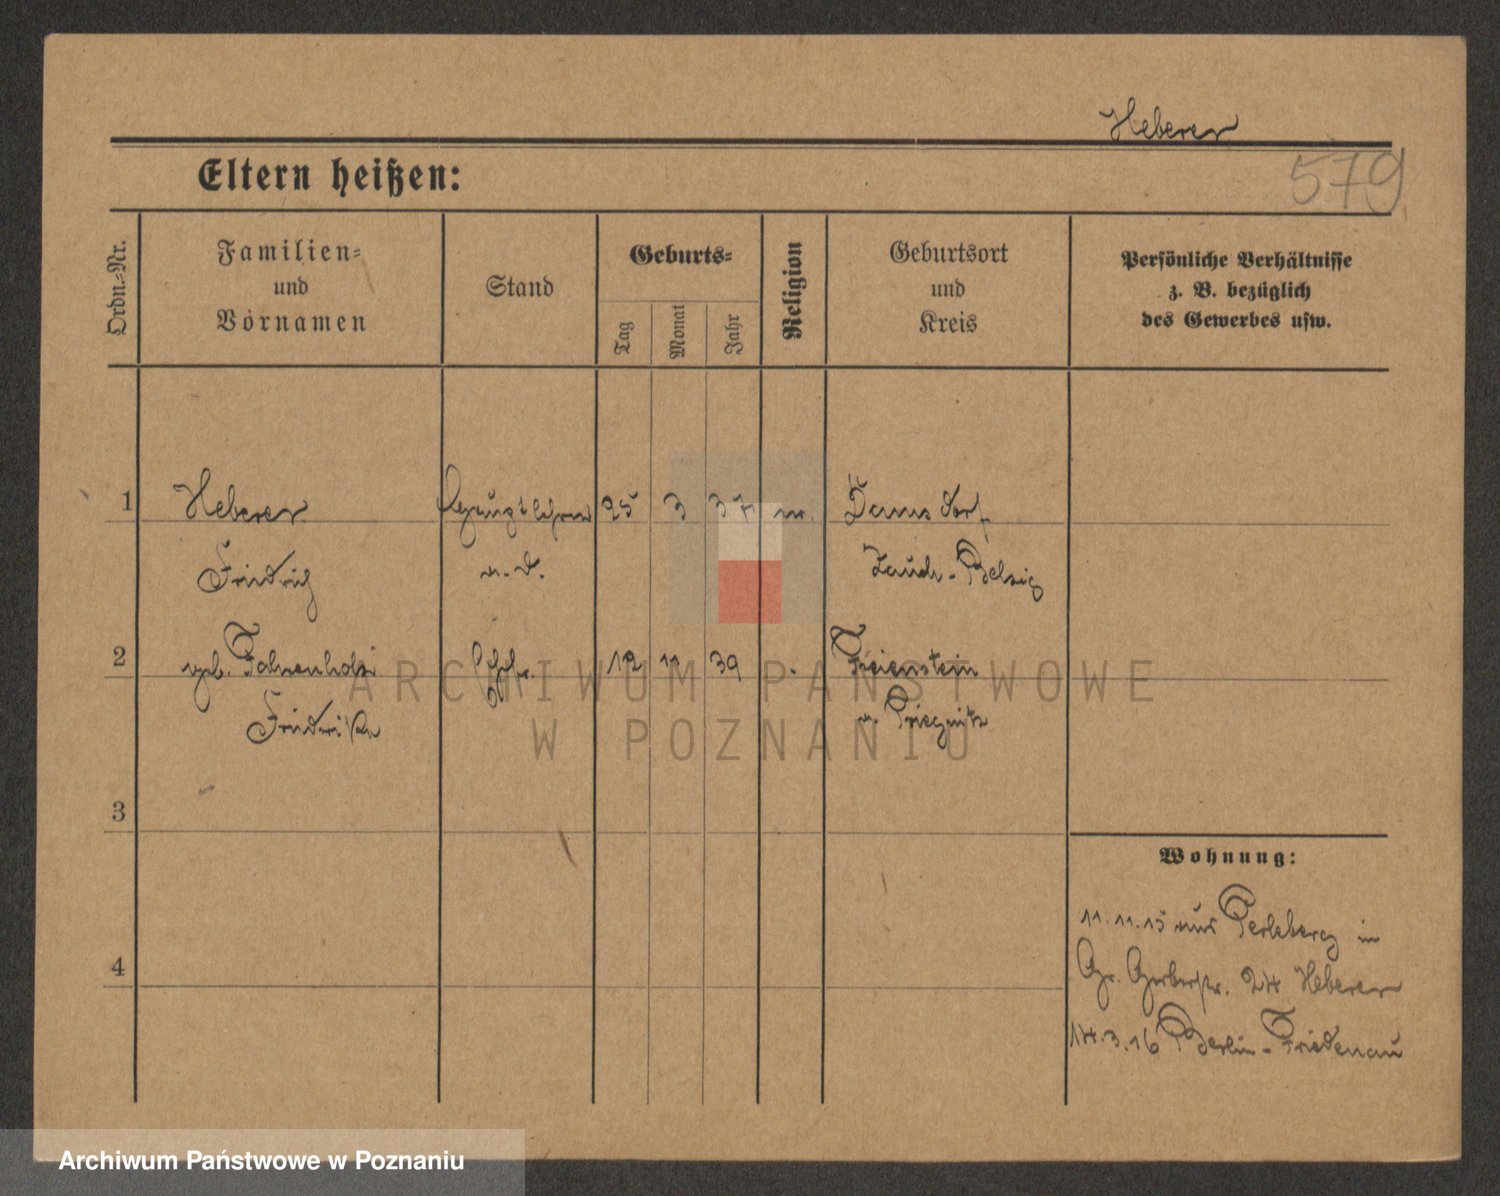 Heberer
579
Eltern heißen:
Ordn.-Nr.
Familien- und Vornamen
Stand
Geburts-
Tag
Monat
Jahr
Religion
Geburtsort und Kreis
Persönliche Verhältnisse
z. B. bezüglich
des Gewerbes usw.
1 Heberer 25 3 37 Damsdorf
Friedrich a. D. Zauch-Belzig
2 geb. Fahrenholz 12 11 39 Freienstein
Friedrike Priegnitz
3
Wohnung:
11.11.15 aus Perleberg in
4
Gr. Gerberstr. 24 Heberer
14.3.16 Berlin-Friedenau
ARCHIWUM PAŃSTWOWE
W POZNANIU
Archiwum Państwowe w Poznaniu